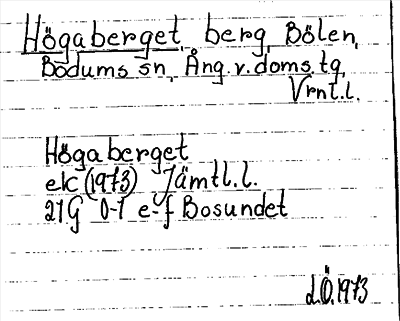 Högaberget, berg, Bölen,
Bodums sn, Ång. v. doms. tg,
Vrnt. l.
Högaberget
ek (1973) Jämtl. l.
21G 0-1 e-f Bosundet
L.Ö. 1973